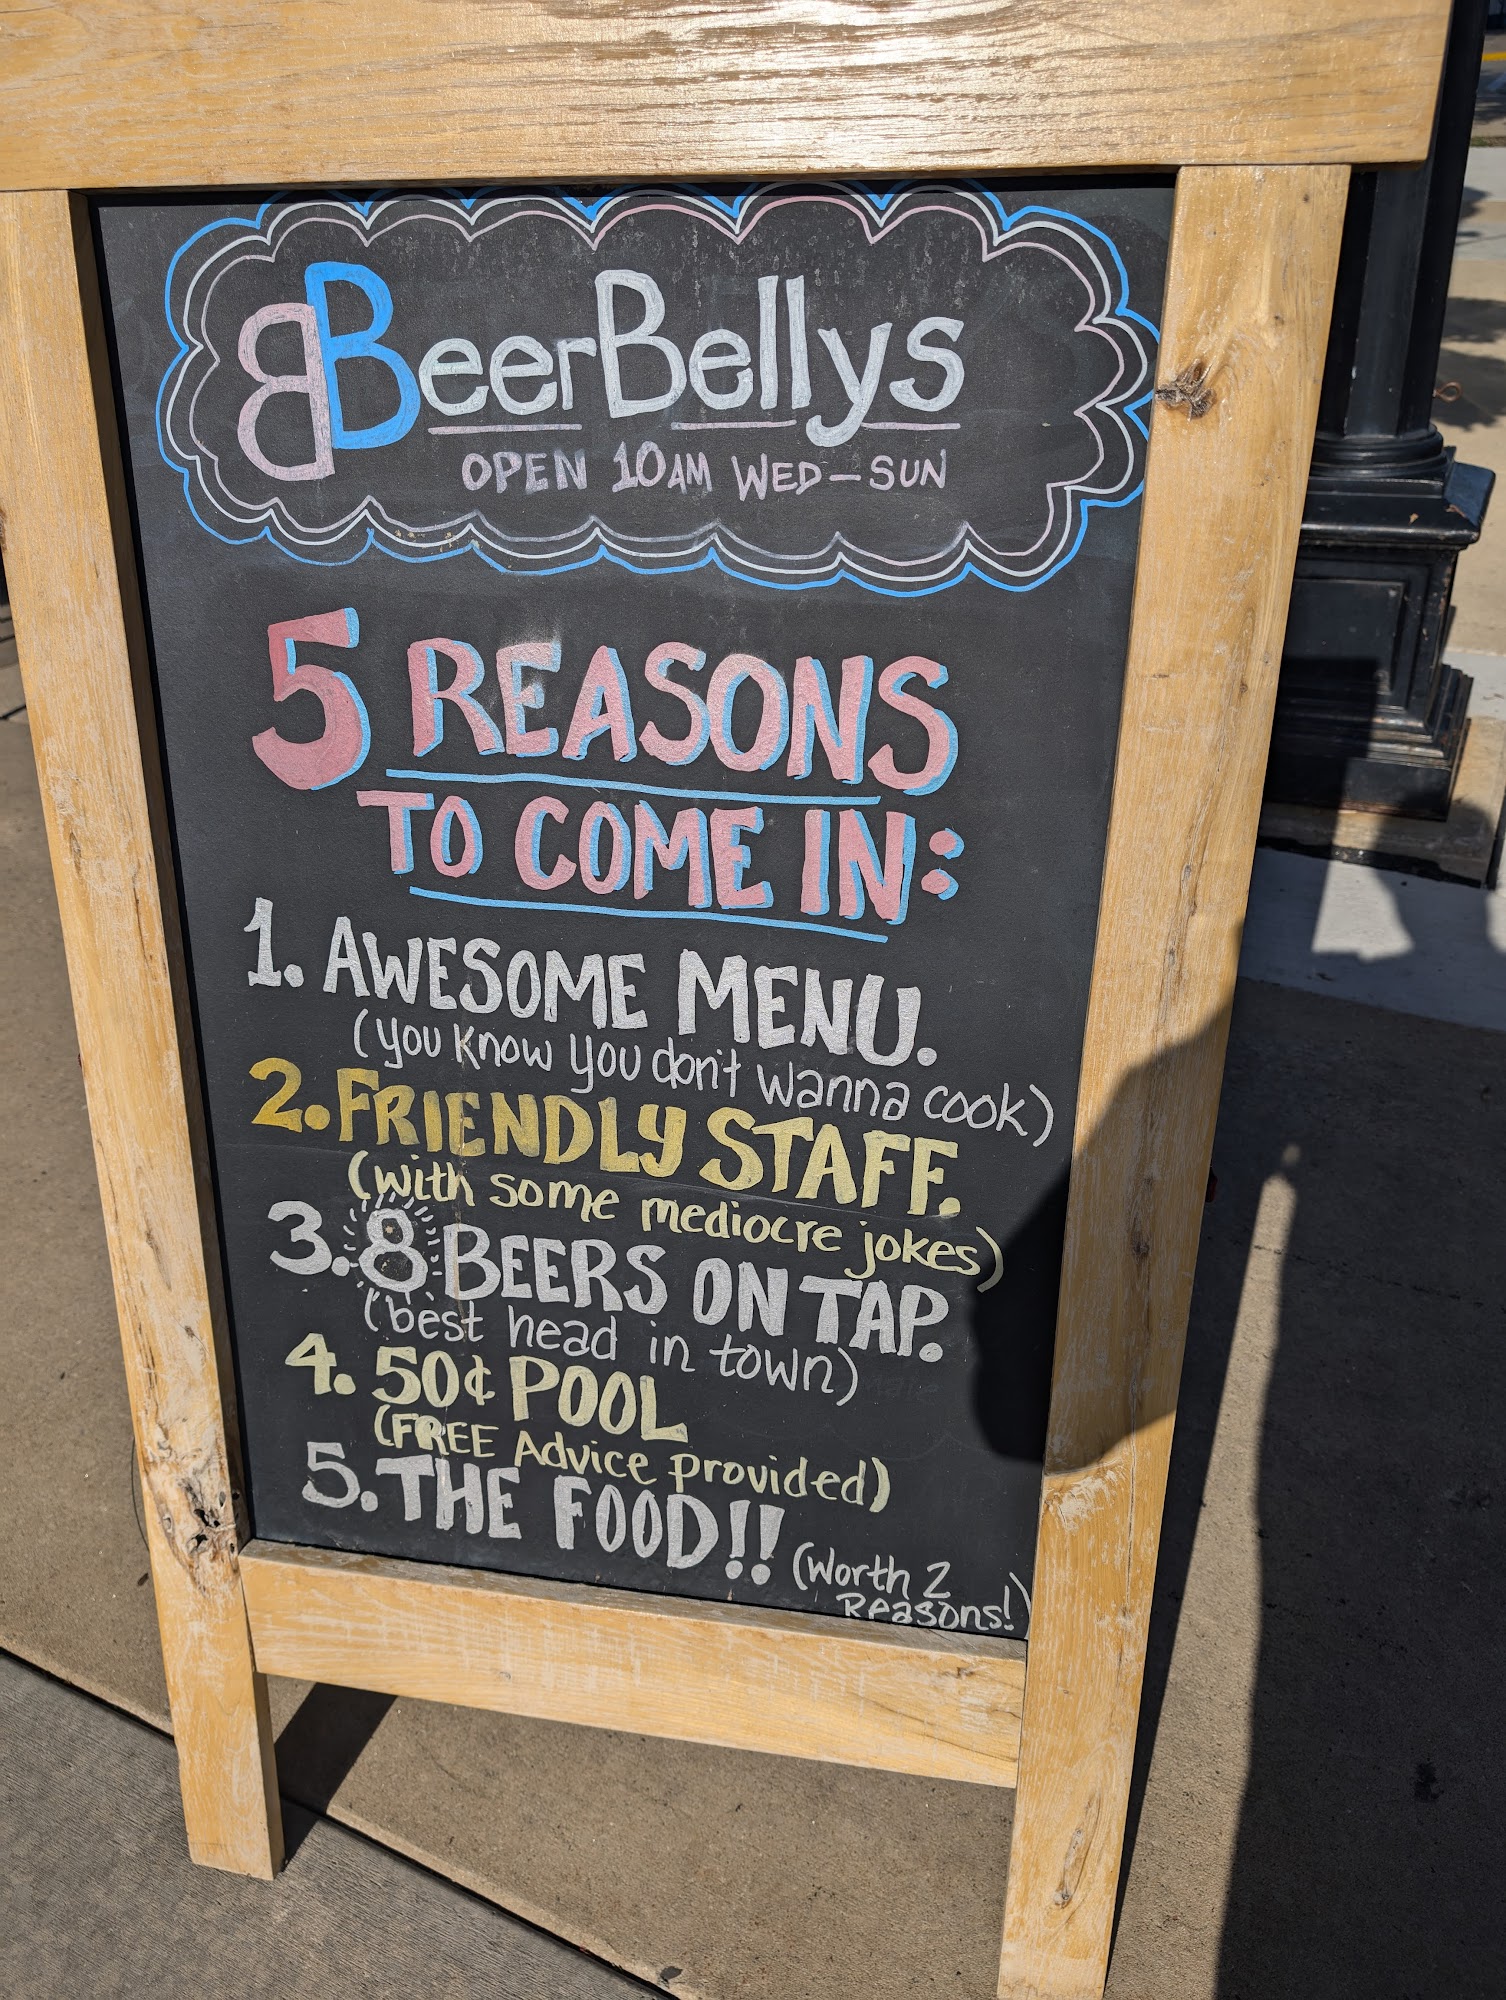 BBeerBellys
OPEN 10AM WED-SUN
5 REASONS
TO COME IN:
1. AWESOME MENU.
(you know you don't wanna cook)
2. FRIENDLY STAFF.
(with some mediocre jokes)
3. 8 BEERS ON TAP.
(best head in town)
4. 50¢ POOL
(FREE Advice provided)
5. THE FOOD!! (Worth 2
Reasons!)